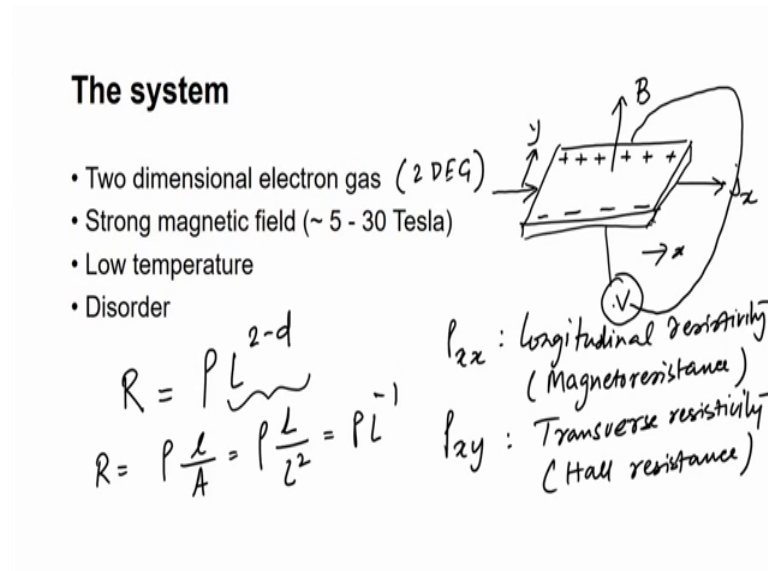 The system
• Two dimensional electron gas (2 DEG)
• Strong magnetic field (~ 5 - 30 Tesla)
• Low temperature
• Disorder
B
y
+ + + + + +
jx
- - - -
→ x
V
R = ρL^{2-d}
R = ρ l/A = ρ L/L² = ρL^{-1}
ρxx : Longitudinal resistivity
(Magnetoresistance)
ρxy : Transverse resistivity
(Hall resistance)